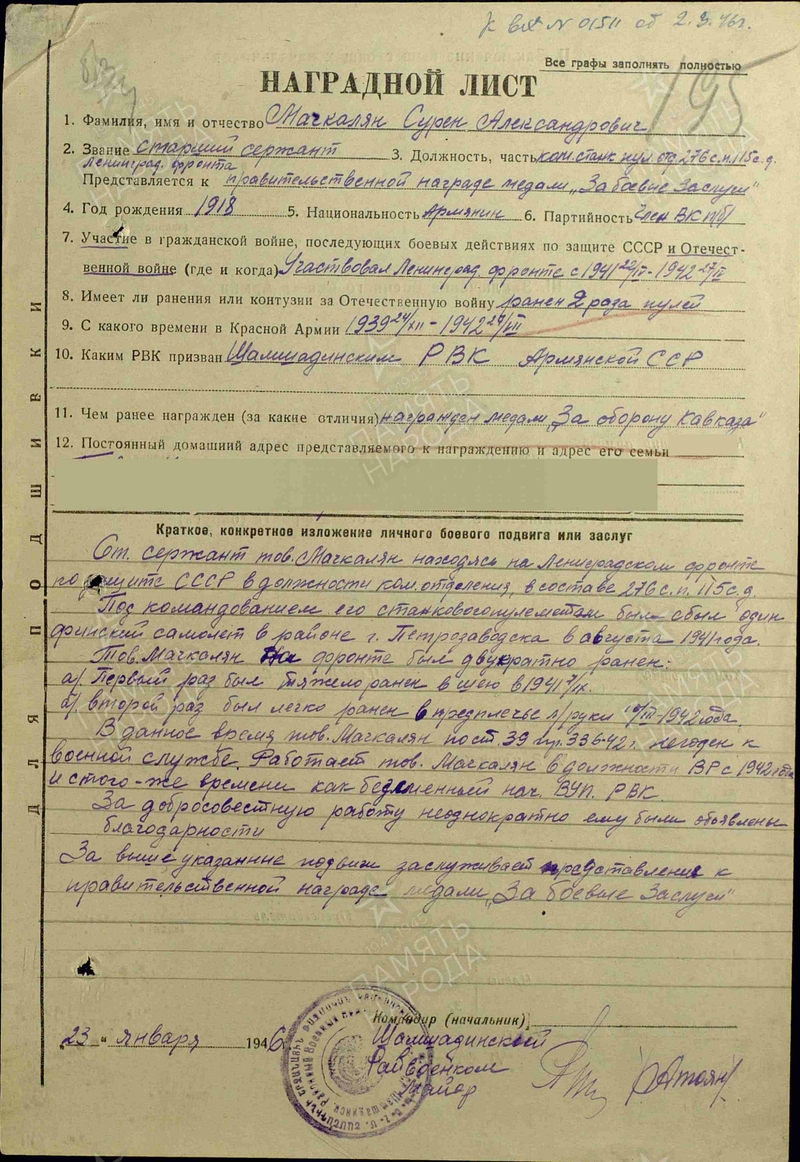 К вх № 01511 от 2.3.46г.
Все графы заполнять полностью
НАГРАДНОЙ ЛИСТ
195
1. Фамилия, имя и отчество Мачкалян Сурен Александрович
2. Звание старший сержант 3. Должность, часть ком. станк. пул. отд. 276 с.п. 115 с.д.
Ленинград. фронта
Представляется к правительственной награде медали „За боевые Заслуги"
4. Год рождения 1918 5. Национальность Армянин 6. Партийность Член ВКП/б/
7. Участие в гражданской войне, последующих боевых действиях по защите СССР и Отечест-
венной войне (где и когда) Участвовал Ленинград. фронте с 1941 - 1942
8. Имеет ли ранения или контузии за Отечественную войну ранен 2 раза пулей
9. С какого времени в Красной Армии 1939 - 1942
10. Каким РВК призван Шамшадинским РВК Армянской ССР
11. Чем ранее награжден (за какие отличия) награжден медали „За оборону Кавказа"
12. Постоянный домаший адрес представляемого к награждению и адрес его семьи
ДЛЯ ПОДШИВКИ
Краткое, конкретное изложение личного боевого подвига или заслуг
Ст. сержант тов. Мачкалян находясь на Ленинградском фронте
по защите СССР в должности ком. отделения, в составе 276 с.п. 115 с.д.
Под командованием его станковогопулеметам был сбыл один
финский самолет в районе г. Петрозаводска в августа 1941 года.
Тов. Мачкалян на фронте был двукратно ранен:
а/ Первый раз был тяжело ранен в шею в 1941 7/IX.
а/ второй раз был легко ранен в предплечье л/руки 1942 года.
В данное время тов. Мачкалян по ст. 39 пр. 336-42 г. негоден к
военной службе. Работает тов. Мачкалян в должности ВР с 1942 года
и стого-же времени как бедсменный нач. ВУП. РВК.
За добросовестную работу неоднократно ему были обявлены
благодарности
За выше указанные подвиги заслуживает представления к
правительственной награде медали „За боевые Заслуги"
Командир (начальник)
„23" января 1946
Шамшадинский
Райвоенком
Майор
/Атоян/
ПАМЯТЬ НАРОДА